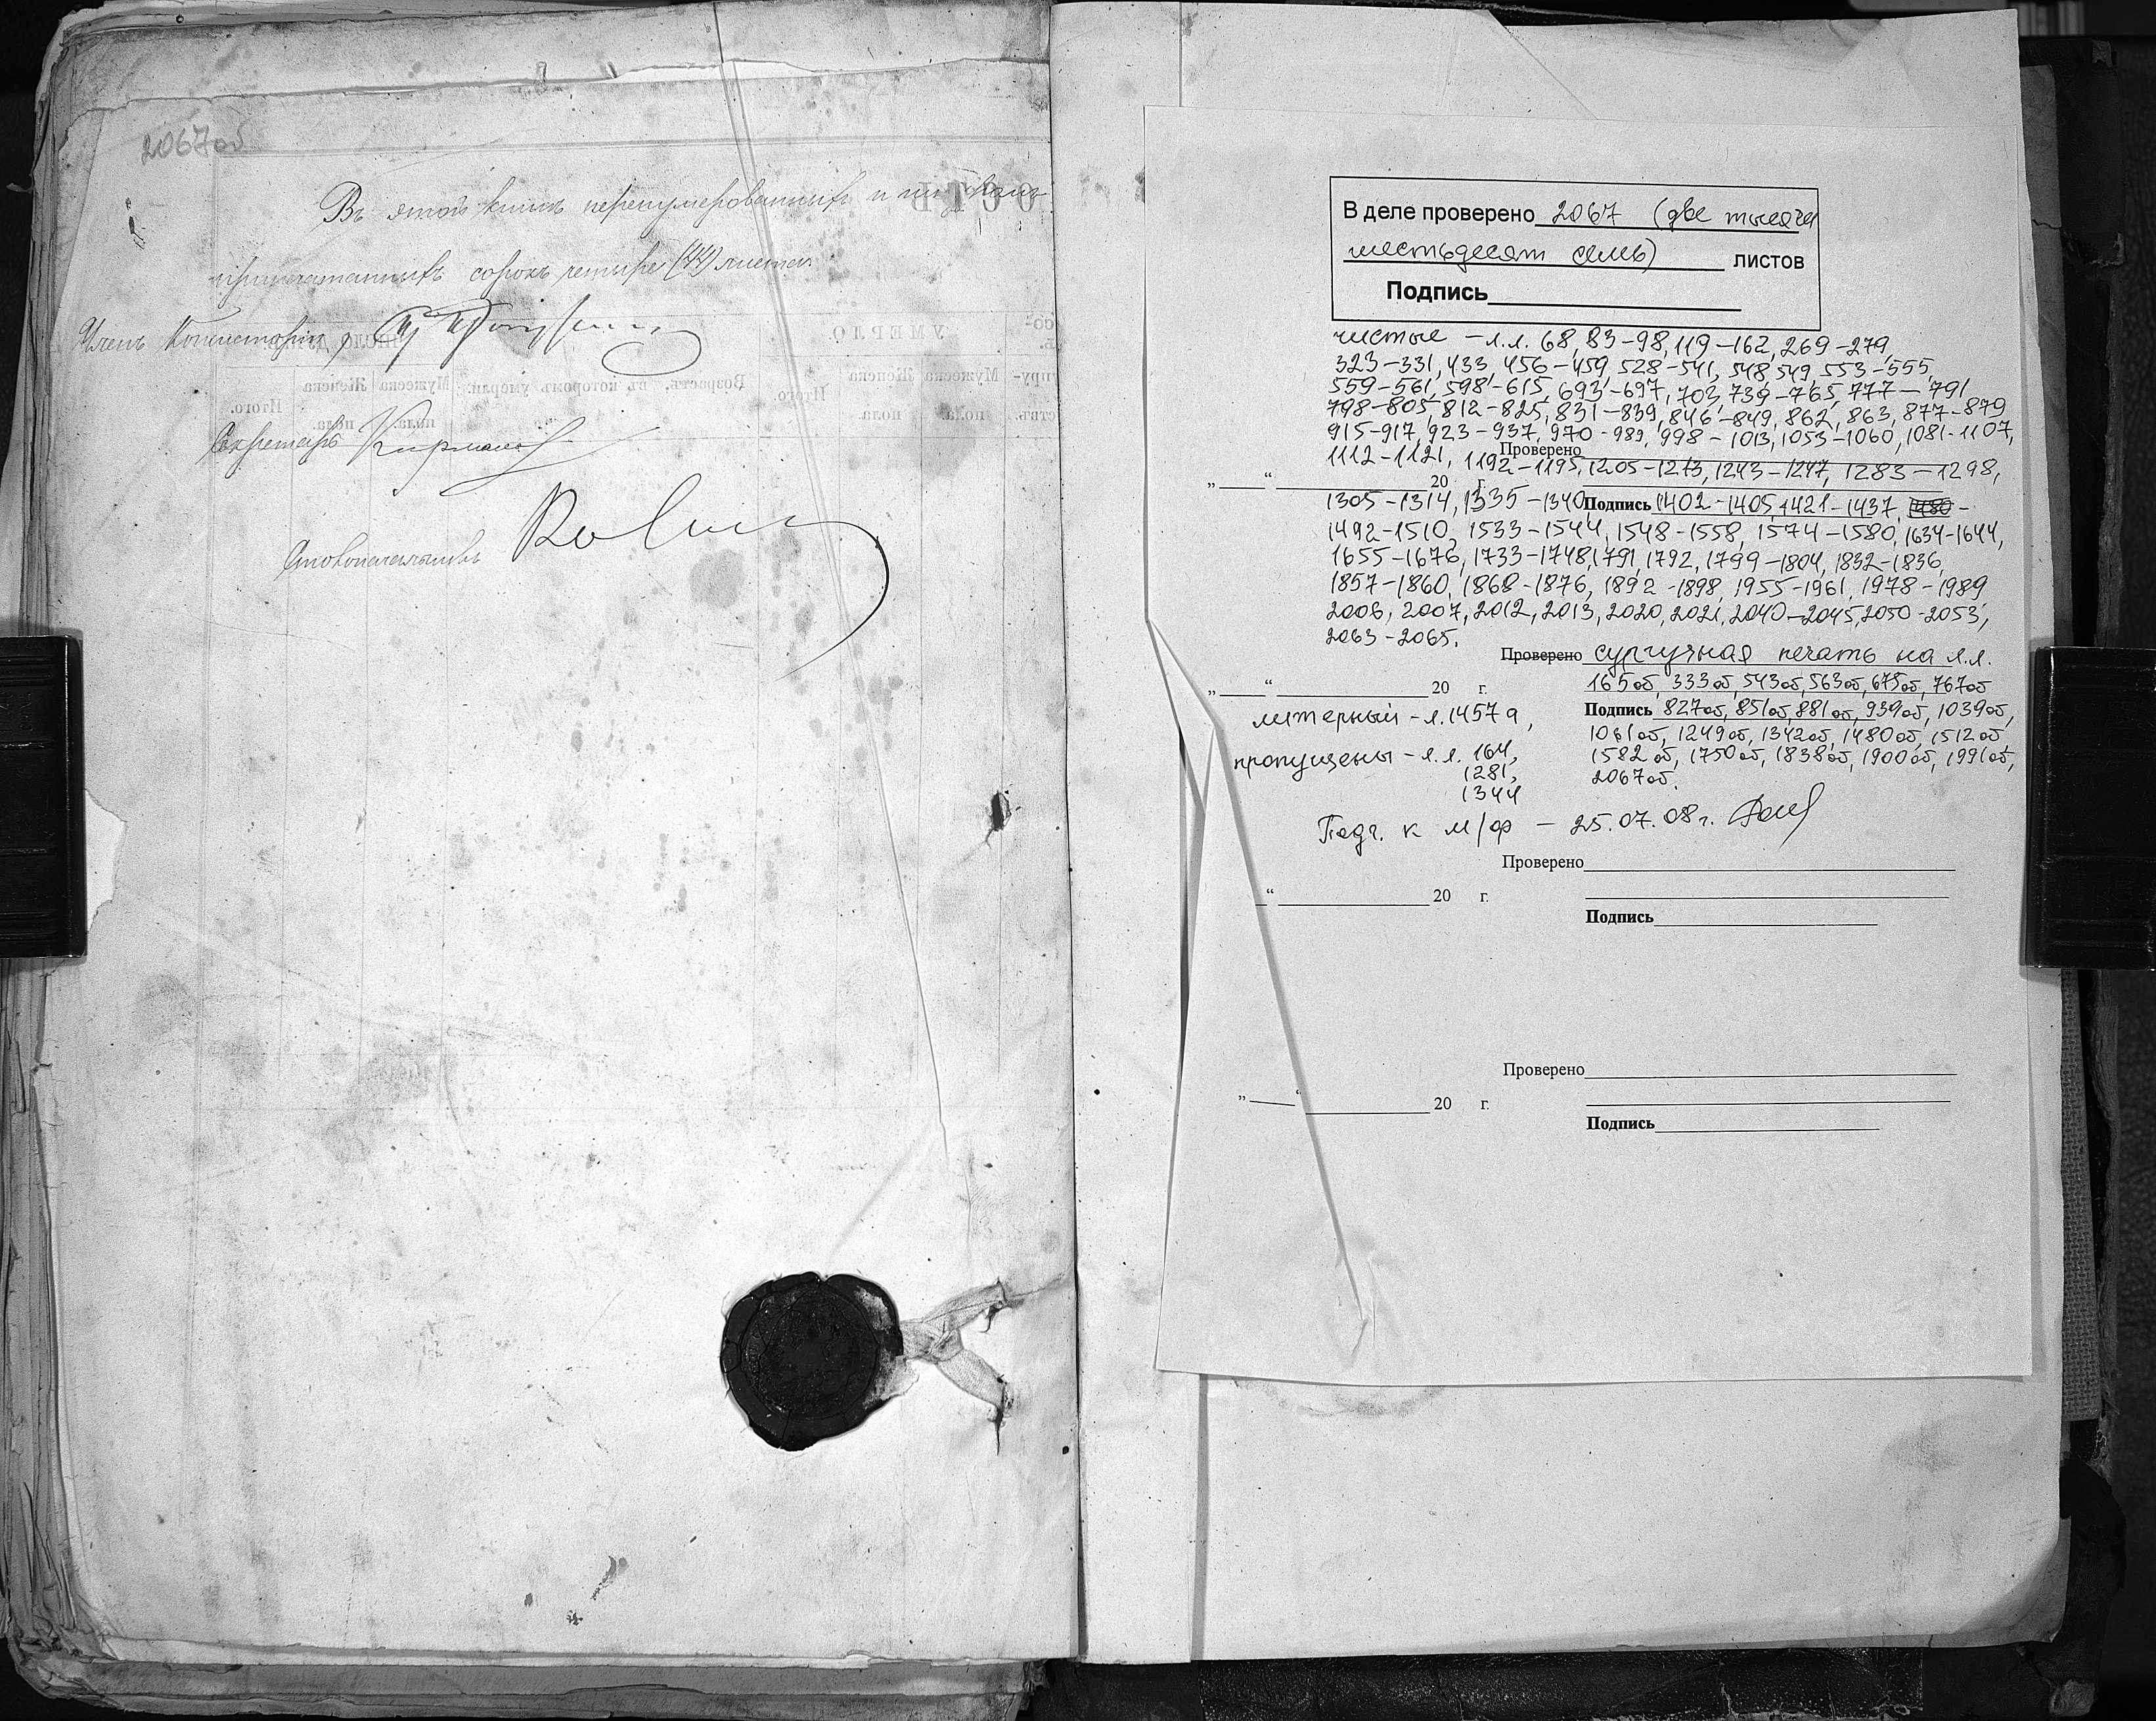 2067об
Въ этой книгѣ перенумерованныхъ и
припечатанныхъ сорокъ четыре (44) листа.
Членъ Консисторіи,
Секретарь
Столоначальникъ
В деле проверено 2067 (две тысячи
шестьдесят семь) листов
Подпись
чистые – л.л. 68, 83–98, 119–162, 269–279,
323–331, 433, 456–459, 528–541, 548, 549, 553–555,
559–561, 598–615, 693–697, 703, 739–765, 777–791
798–805, 812–825, 831–839, 846–849, 862, 863, 877–879
915–917, 923–937, 970–989, 998–1013, 1053–1060, 1081–1107,
Проверено
1112–1121, 1192–1195, 1205–1213, 1243–1247, 1283–1298,
„ “ 20 г.
1305–1314, 1335–1340 Подпись 1402–1405, 1421–1437, 1480–
1492–1510, 1533–1544, 1548–1558, 1574–1580, 1634–1644,
1655–1676, 1733–1748, 1791, 1792, 1799–1804, 1832–1836,
1857–1860, 1868–1876, 1892–1898, 1955–1961, 1978–1989
2006, 2007, 2012, 2013, 2020, 2021, 2040–2045, 2050–2053,
2063–2065.
Проверено сургучная печать на л.л.
165об, 333об, 543об, 563об, 675об, 767об
„ “ 20 г.
литерный – л. 1457а,
Подпись 827об, 851об, 881об, 939об, 1039об,
1061об, 1249об, 1342об, 1480об, 1512об
пропущены – л.л. 164,
1281,
1344
1582об, 1750об, 1838об, 1900об, 1991об,
2067об.
Подг. к м/ф – 25.07.08г.
Проверено
“ 20 г.
Подпись
Проверено
„ “ 20 г.
Подпись